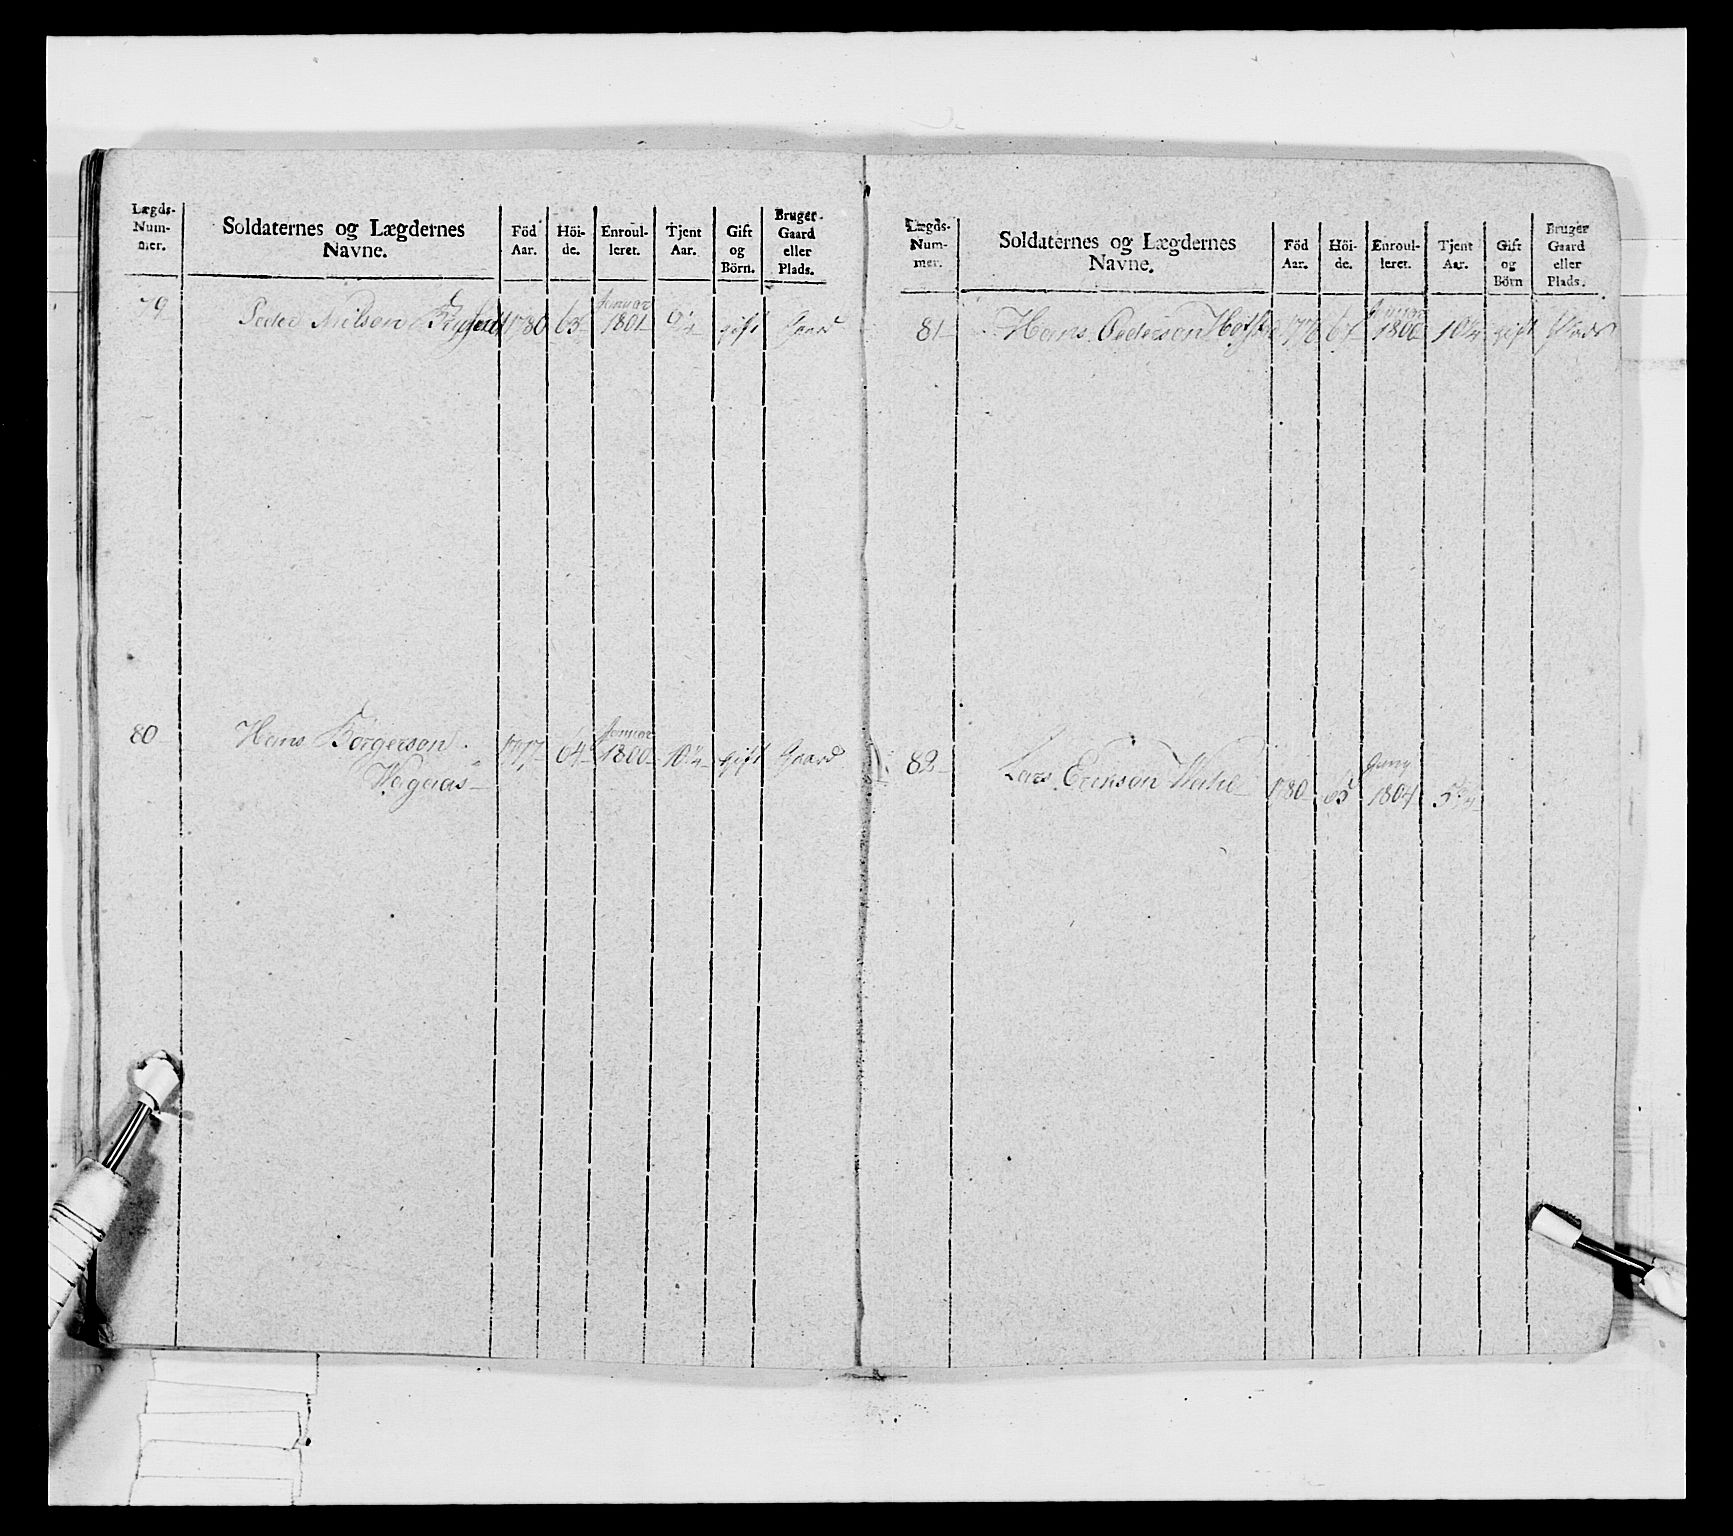 Lægds-Num-mer. Soldaternes og Lægdernes Navne. Föd Aar. Höi-de. Enroul-leret. Tjent Aar. Gift og Börn. Bruger Gaard eller Plads.
79 Peder Nilsen 1780 65 Januar 1801 9 1/4 gift Gaard
80 Hans Börgersen 1777 64 Januar 1800 10 1/4 gift Gaard
Wegaas
Lægds-Num-mer. Soldaternes og Lægdernes Navne. Föd Aar. Höi-de. Enroul-leret. Tjent Aar. Gift og Börn Bruger Gaard eller Plads.
81 Hans Pedersen 1776 Januar 1800 10 1/4 gift Plads
82 Lars Eriksen 1780 65 Janu 1804